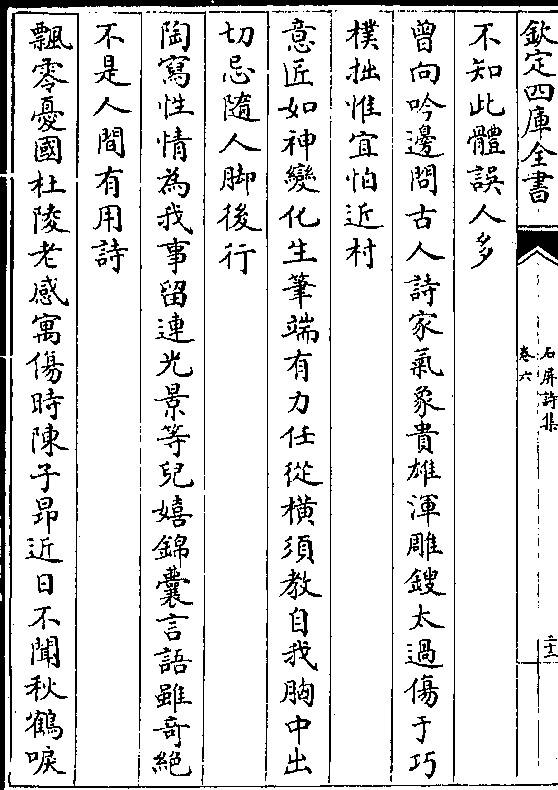 欽定四庫全書
石屏詩集
卷六
二十二
不知此體誤人多
曾向吟邊問古人詩家氣象貴雄渾雕鎪太過傷于巧
樸拙惟宜怕近村
意匠如神變化生筆端有力任從橫須教自我胸中出
切忌隨人脚後行
陶寫性情為我事留連光景等兒嬉錦囊言語雖奇絶
不是人間有用詩
飄零憂國杜陵老感寓傷時陳子昂近日不聞秋鶴唳